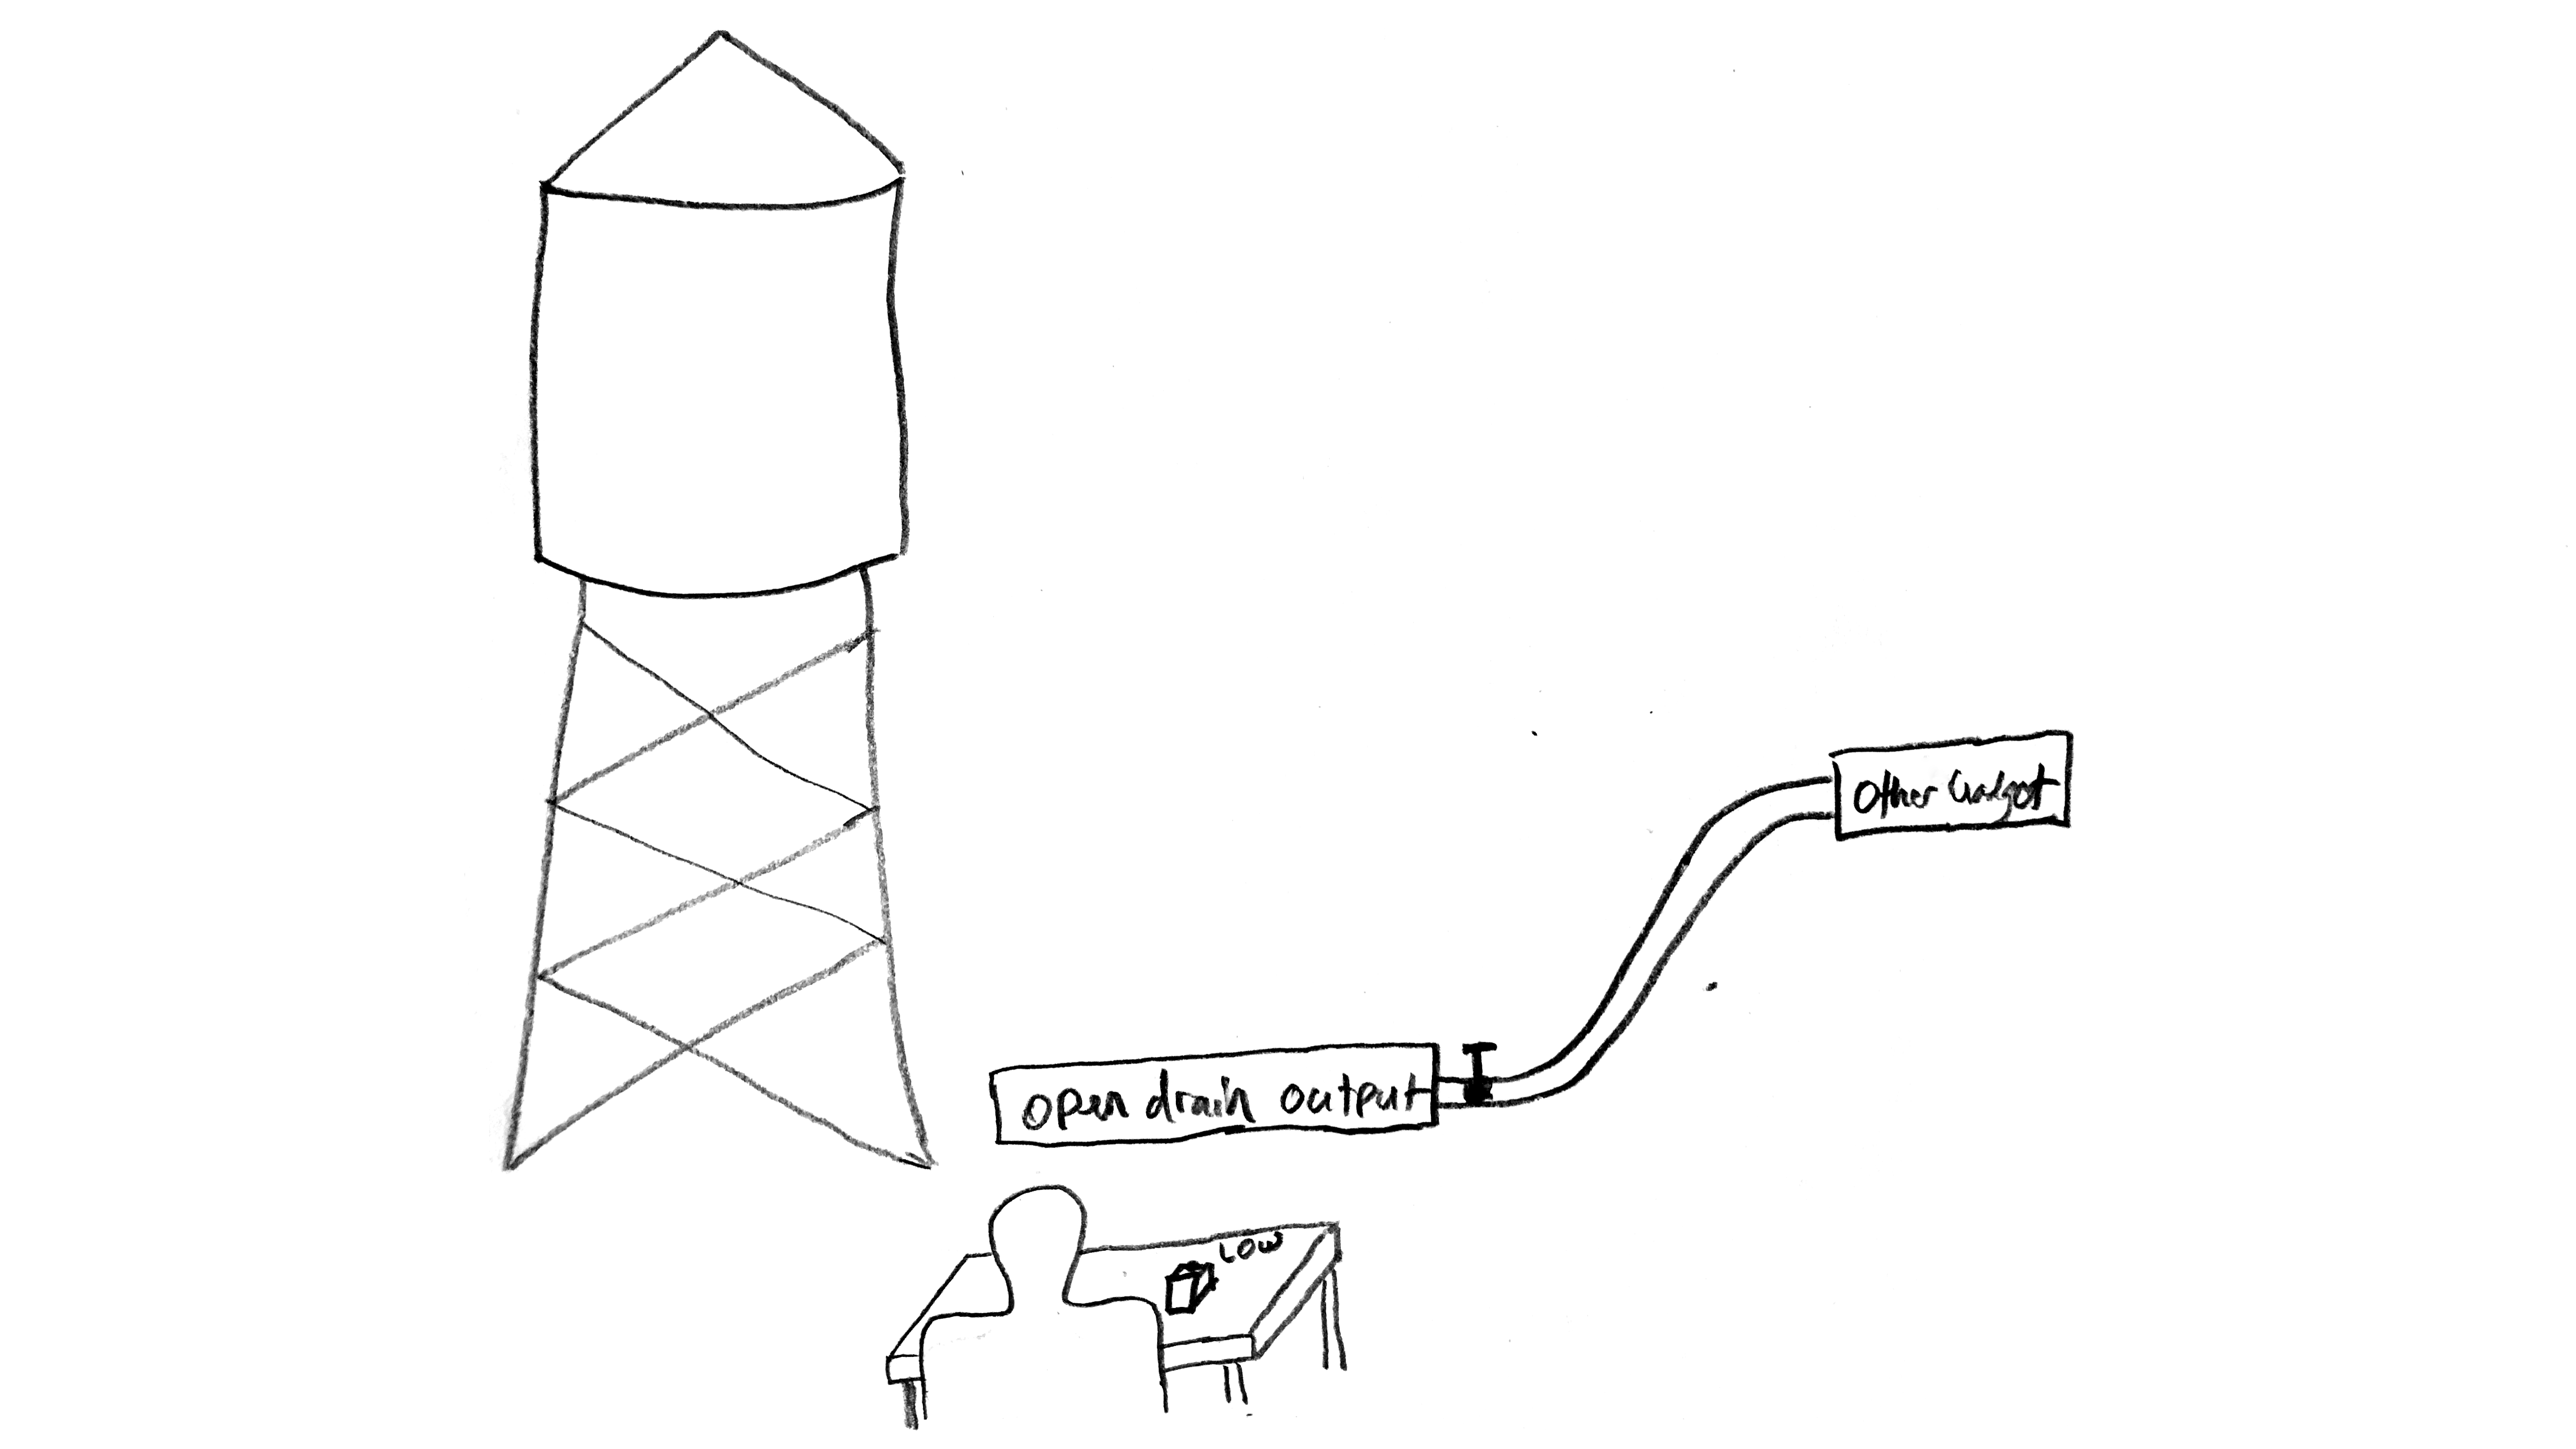 Other Gadget
open drain output
LOW